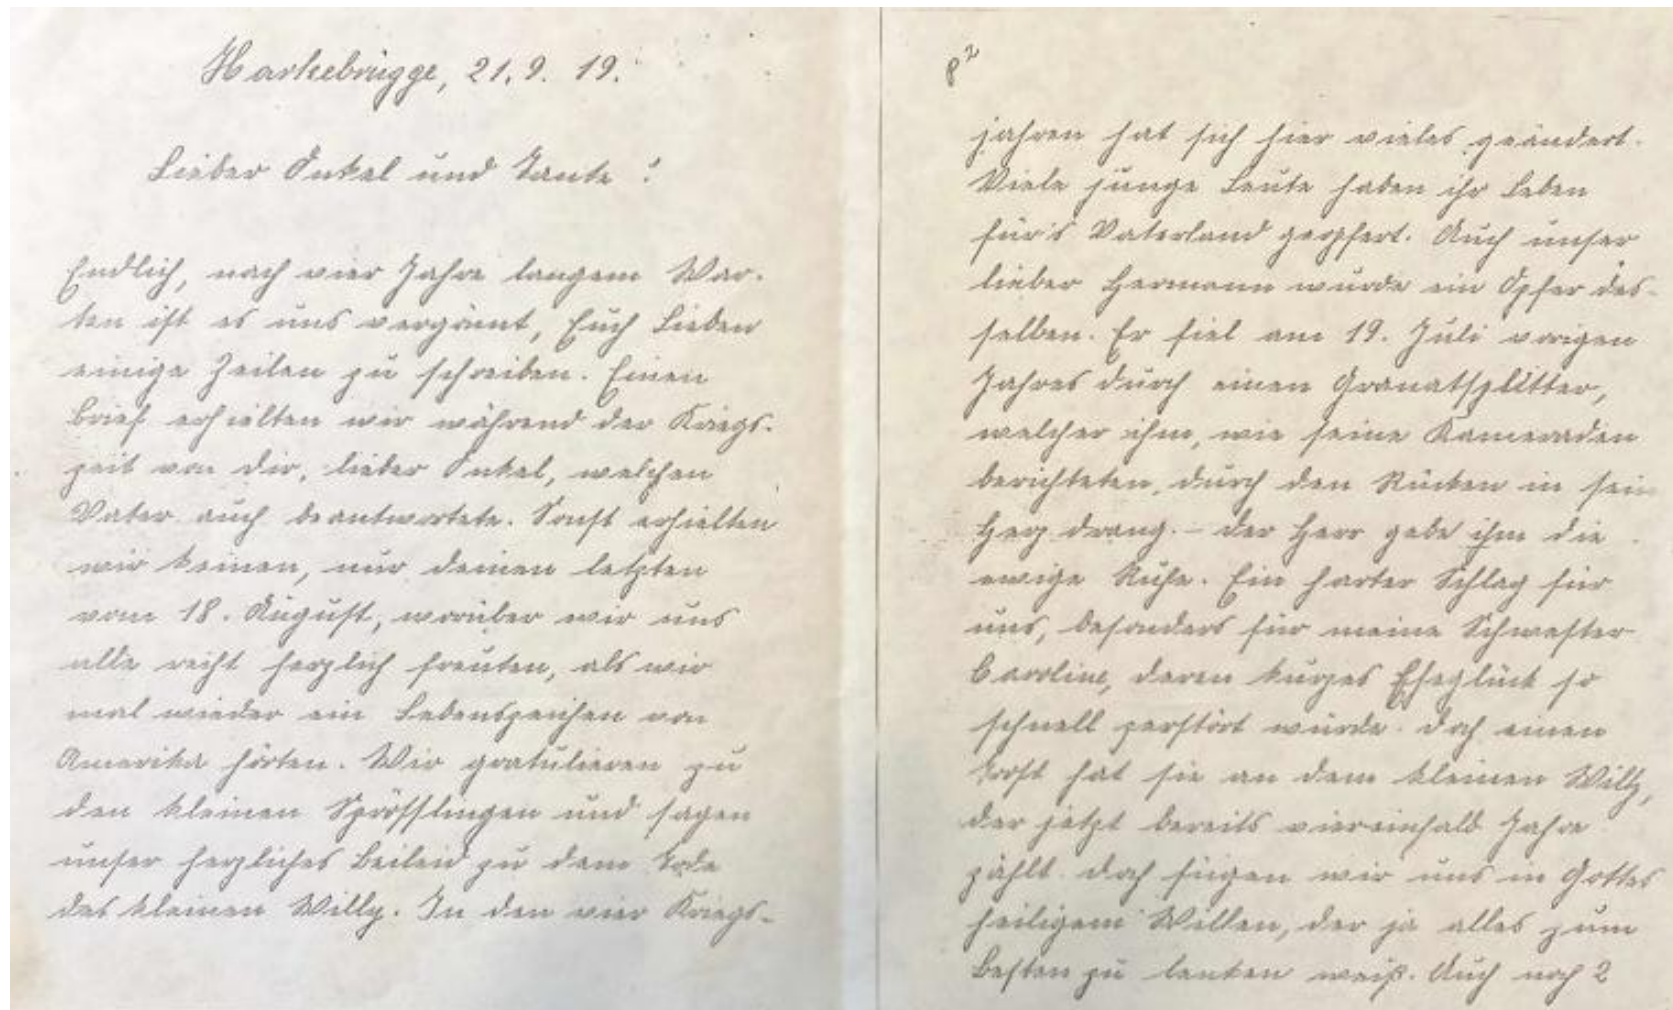 Harkebrügge, 21.9. 19.
Lieber Onkel und Tante!
Endlich, nach vier Jahre langem War-
ten ist es uns vergönnt, Euch Lieben
einige Zeilen zu schreiben. Einen
Brief erhielten wir während der Kriegs-
zeit von dir, lieber Onkel, welchen
Vater auch beantwortete. Sonst erhielten
wir keinen, nur deinen letzten
vom 18. August, worüber wir uns
alle recht herzlich freuten, als wir
mal wieder ein Lebenszeichen von
Amerika hörten. Wir gratulieren zu
den kleinen Sprösslingen und sagen
unser herzliches Beileid zu dem Tode
des kleinen Willy. In den vier Kriegs-
p2
jahren hat sich hier vieles geändert.
Viele junge Leute haben ihr Leben
für's Vaterland geopfert. Auch unser
lieber Hermann wurde ein Opfer des-
selben. Er fiel am 19. Juli vorigen
Jahres durch einen Granatsplitter,
welcher ihm, wie seine Kameraden
berichteten, durch den Rücken in sein
Herz drang. – Der Herr gebe ihm die
ewige Ruhe. Ein harter Schlag für
uns, besonders für meine Schwester
Caroline, deren kurzes Eheglück so
schnell zerstört wurde. Doch einen
Trost hat sie an dem kleinen Willy,
der jetzt bereits viereinhalb Jahre
zählt. Doch fügen wir uns in Gottes
heiligem Willen, der ja alles zum
Besten zu lenken weiß. Auch noch 2